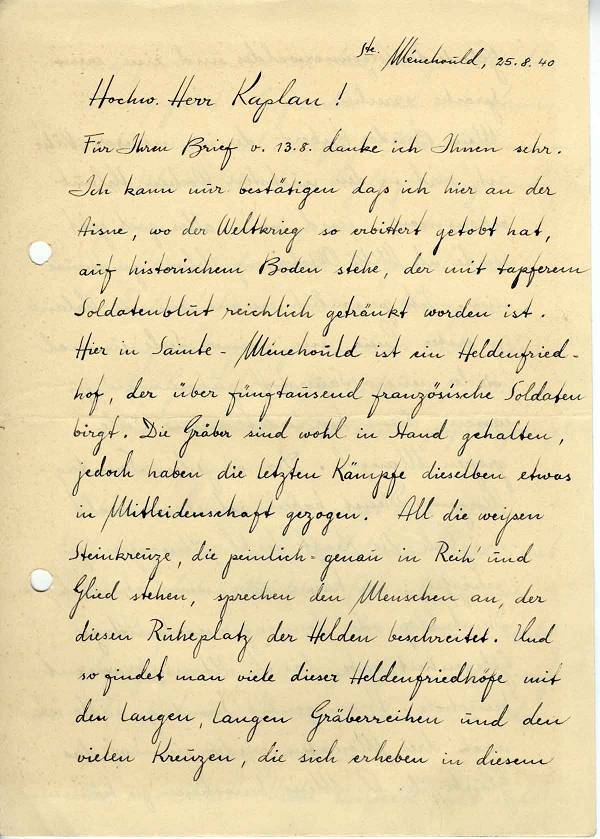 Ste. Ménehould, 25.8.40
Hochw. Herr Kaplan !
Für Ihren Brief v. 13.8. danke ich Ihnen sehr.
Ich kann nur bestätigen daß ich hier an der
Aisne, wo der Weltkrieg so erbittert getobt hat,
auf historischem Boden stehe, der mit tapferem
Soldatenblut reichlich getränkt worden ist.
Hier in Sainte-Ménehould ist ein Heldenfried-
hof, der über fünftausend französische Soldaten
birgt. Die Gräber sind wohl in Stand gehalten,
jedoch haben die letzten Kämpfe dieselben etwas
in Mitleidenschaft gezogen. All die weißen
Steinkreuze, die peinlich-genau in Reih' und
Glied stehen, sprechen den Menschen an, der
diesen Ruheplatz der Helden beschreitet. Und
so findet man viele dieser Heldenfriedhöfe mit
den langen, langen Gräberreihen und den
vielen Kreuzen, die sich erheben in diesem